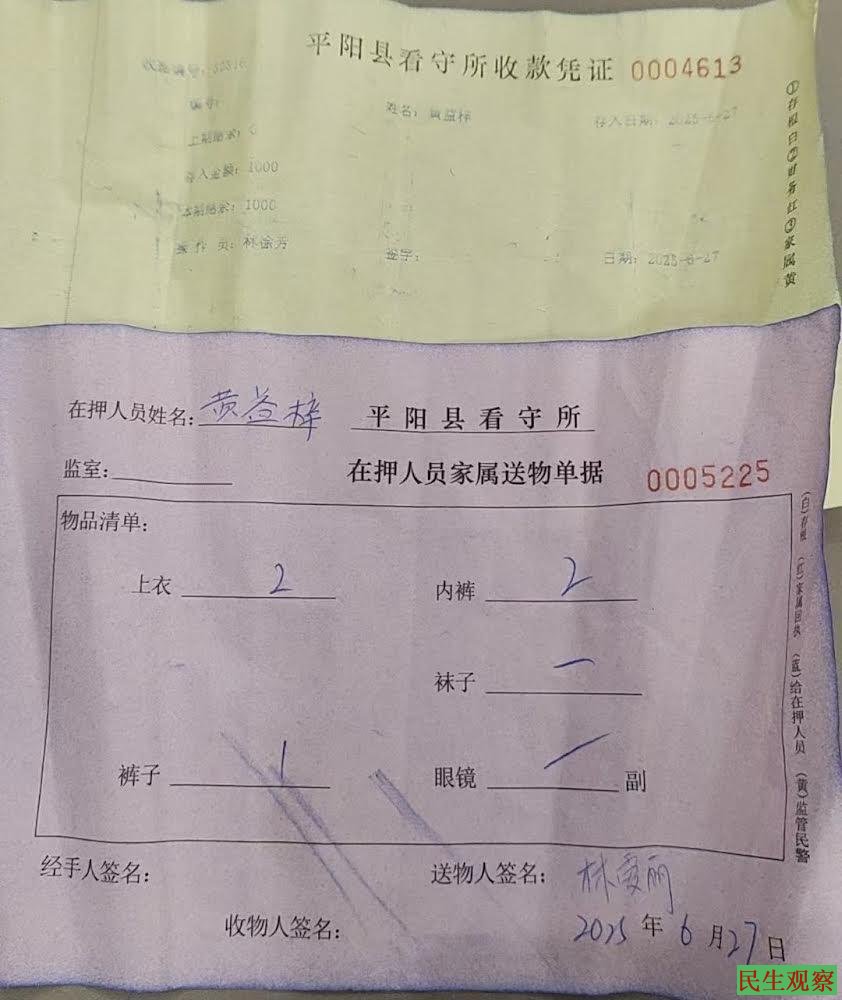 平阳县看守所收款凭证 0004613
编号:
姓名: 黄益梓
存入日期: 2025-6-27
上期结余: 0
存入金额: 1000
本期结余: 1000
操作员: 林徐芳
签字:
日期: 2025-6-27
①存根白②财务红③家属黄
在押人员姓名: 黄益梓 平阳县看守所
监室:
在押人员家属送物单据 0005225
物品清单:
上衣 2 内裤 2
袜子 一
裤子 1 眼镜 / 副
(白)存根 (红)家属回执 (蓝)给在押人员 (黄)监管民警
经手人签名: 送物人签名: 林霞丽
收物人签名: 2025 年 6 月 27 日
民生观察